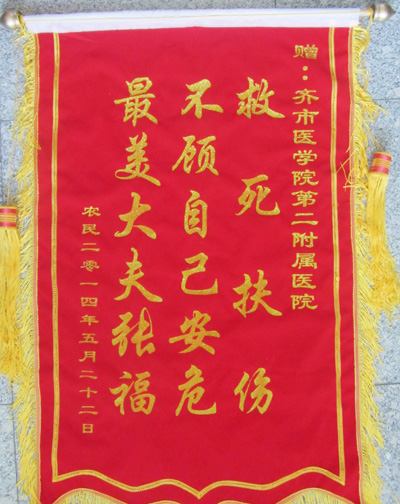 赠：齐市医学院第二附属医院
救死扶伤
不顾自己安危
最美大夫张福
农民二零一四年五月二十二日